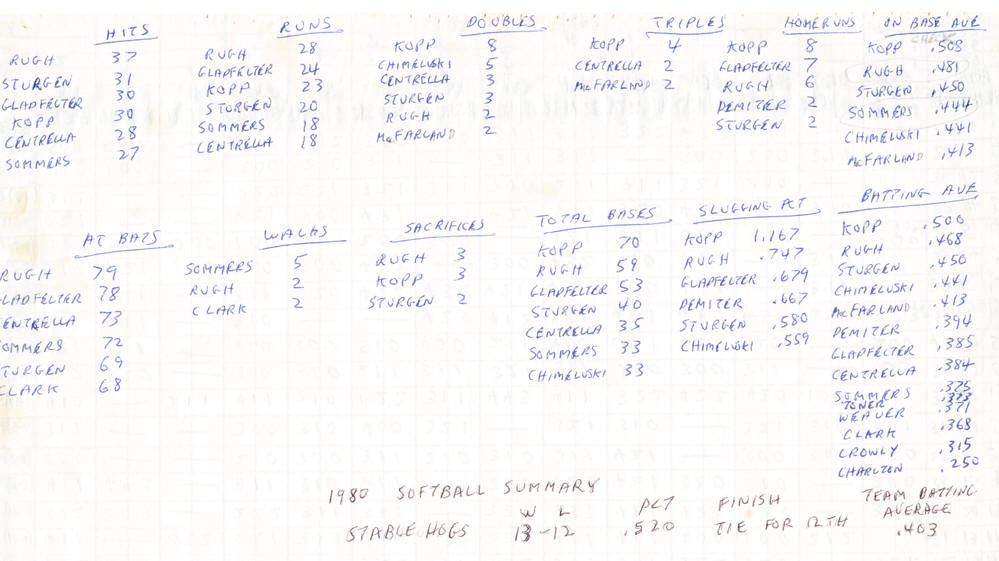 HITS
RUGH 37
STURGEN 31
GLADFELTER 30
KOPP 30
CENTRELLA 28
SOMMERS 27
RUNS
RUGH 28
GLADFELTER 24
KOPP 23
STURGEN 20
SOMMERS 18
CENTRELLA 18
DOUBLES
KOPP 8
CHIMELUSKI 5
CENTRELLA 3
STURGEN 3
RUGH 2
McFARLAND 2
TRIPLES
KOPP 4
CENTRELLA 2
McFARLAND 2
HOMERUNS
KOPP 8
GLADFELTER 7
RUGH 6
DEMITER 2
STURGEN 2
ON BASE AVE
CHECK
KOPP .508
RUGH .481
STURGEN .450
SOMMERS .444
CHIMELUSKI .441
McFARLAND .413
AT BATS
RUGH 79
GLADFELTER 78
CENTRELLA 73
SOMMERS 72
STURGEN 69
CLARK 68
WALKS
SOMMERS 5
RUGH 2
CLARK 2
SACRIFICES
RUGH 3
KOPP 3
STURGEN 2
TOTAL BASES
KOPP 70
RUGH 59
GLADFELTER 53
STURGEN 40
CENTRELLA 35
SOMMERS 33
CHIMELUSKI 33
SLUGGING PCT
KOPP 1.167
RUGH .747
GLADFELTER .679
DEMITER .667
STURGEN .580
CHIMELUSKI .559
BATTING AVE
KOPP .500
RUGH .468
STURGEN .450
CHIMELUSKI .441
McFARLAND .413
DEMITER .394
GLADFELTER .385
CENTRELLA .384
SOMMERS .375
TONER .373
WEAVER .371
CLARK .368
CROWLY .315
CHARLTON .250
1980 SOFTBALL SUMMARY
W L PCT FINISH TEAM BATTING AVERAGE
STABLE HOGS 13-12 .520 TIE FOR 12TH .403